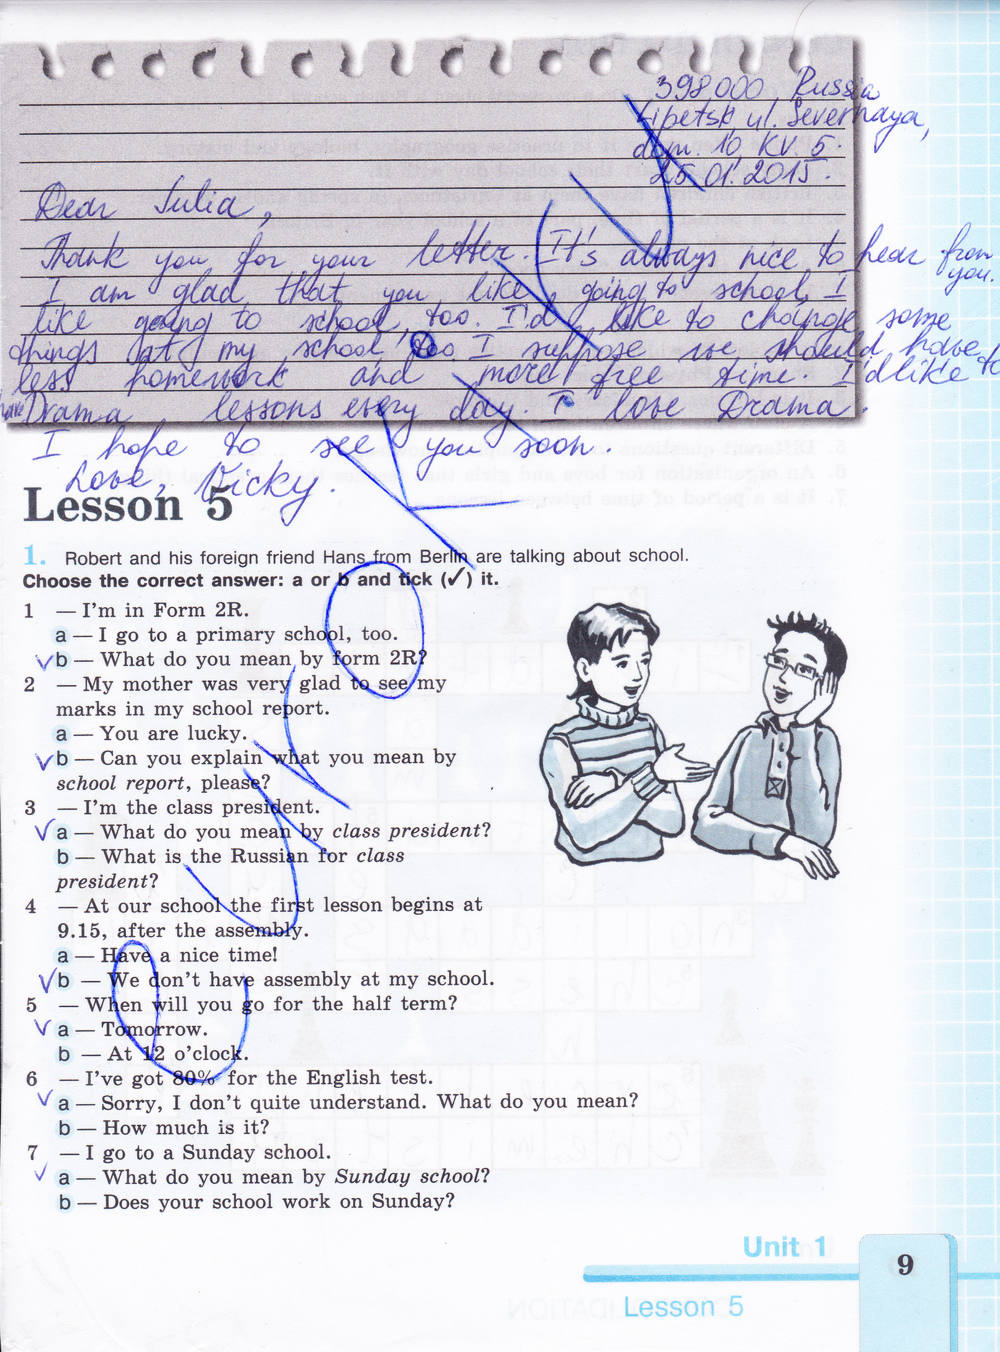 398000 Russia
Lipetsk ul. Severnaya,
dom. 10, KV. 5.
25.01.2015.
Dear Julia,
Thank you for your letter. It's always nice to hear from
you.
I am glad that you like going to school, I
like going to school, too. I'd like to change some
things at my school too I suppose we should have
less homework and more free time. I'd like to
have Drama lessons every day. I love Drama.
I hope to see you soon.
Love, Vicky.
Lesson 5
1. Robert and his foreign friend Hans from Berlin are talking about school.
Choose the correct answer: a or b and tick (✓) it.
1 — I'm in Form 2R.
a — I go to a primary school, too.
✓ b — What do you mean by form 2R?
2 — My mother was very glad to see my
marks in my school report.
a — You are lucky.
✓ b — Can you explain what you mean by
school report, please?
3 — I'm the class president.
✓ a — What do you mean by class president?
b — What is the Russian for class
president?
4 — At our school the first lesson begins at
9.15, after the assembly.
a — Have a nice time!
✓ b — We don't have assembly at my school.
5 — When will you go for the half term?
✓ a — Tomorrow.
b — At 12 o'clock.
6 — I've got 80% for the English test.
✓ a — Sorry, I don't quite understand. What do you mean?
b — How much is it?
7 — I go to a Sunday school.
✓ a — What do you mean by Sunday school?
b — Does your school work on Sunday?
Unit 1
9
Lesson 5